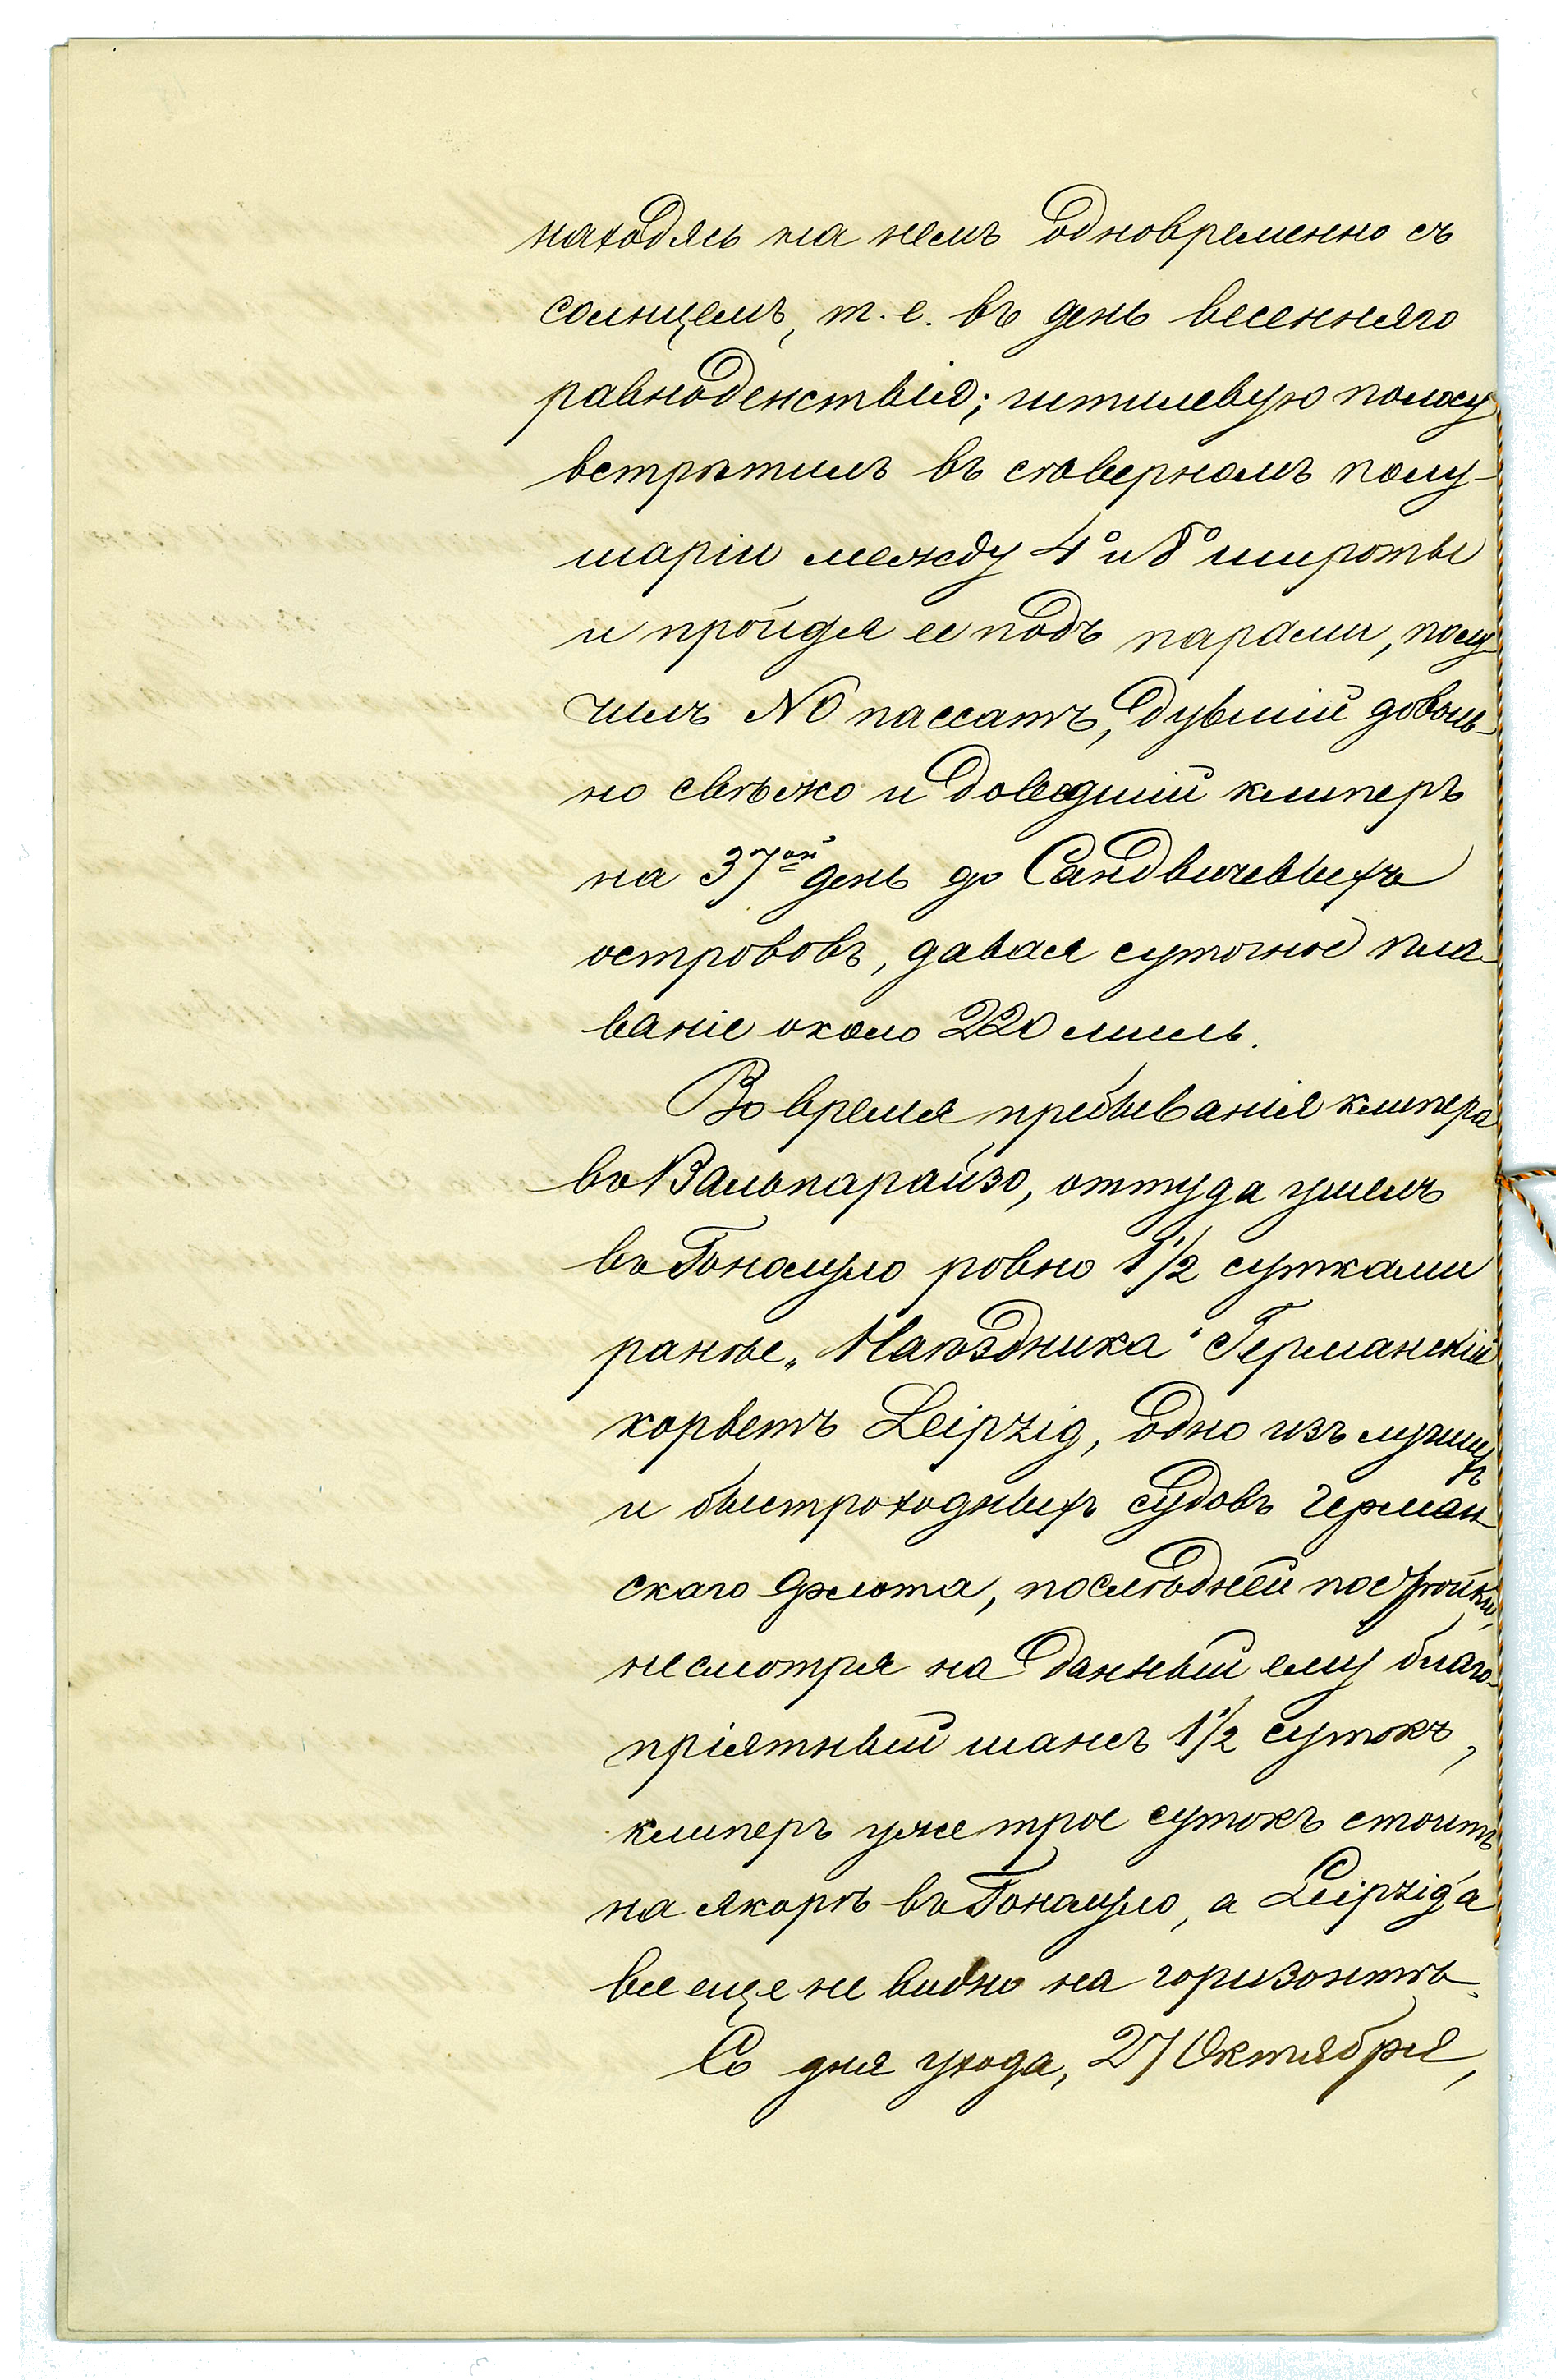 находясь на немъ одновременно съ
солнцемъ, т. е. въ день весенняго
равноденствія; штилевую полосу
встрѣтилъ въ сѣверномъ полу-
шаріи между 4° и 8° широты
и пройдя ее подъ парами, полу-
чилъ NO пассатъ, дувшій доволь-
но свѣжо и доведшій клиперъ
на 37ой день до Сандвичевыхъ
острововъ, давая суточное пла-
ваніе около 220 миль.
Во время пребыванія клипера
въ Вальпарайзо, оттуда ушелъ
въ Гонолулю ровно 1½ сутками
ранѣе „Наѣздника“ Германскій
корветъ Leipzig, одно изъ лучшихъ
и быстроходныхъ судовъ герман-
скаго флота, послѣдней постройки,
несмотря на данный ему благо-
пріятный шансъ 1½ сутокъ,
клиперъ уже трое сутокъ стоитъ
на якорѣ въ Гонолулю, а Leipzig'а
все еще не видно на горизонтѣ.
Со дня ухода, 27 Октября,